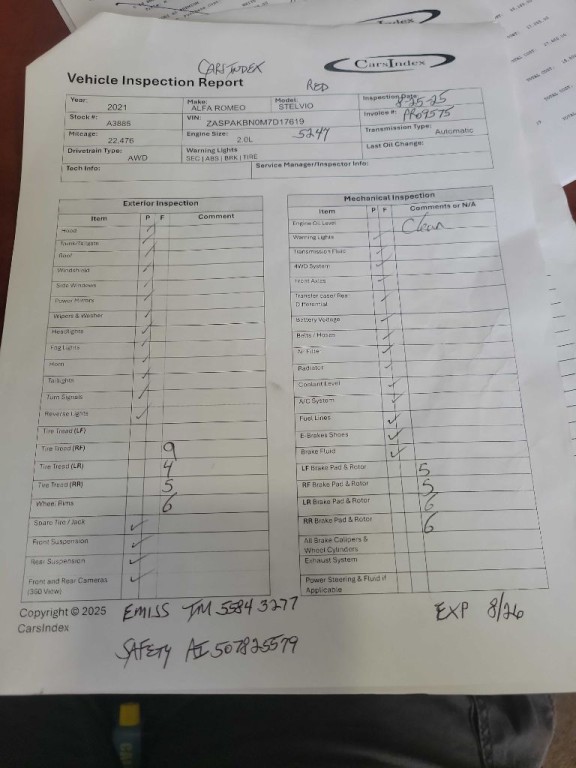 CarsIndex
CARSINDEX
RED
Vehicle Inspection Report
Year: 2021 Make: ALFA ROMEO Model: STELVIO Inspection Date: 8-25-25
Stock #: A3885 VIN: ZASPAKBN0M7D17619 Invoice #:
Mileage: 22,476 Engine Size: 2.0L 5247 Transmission Type: Automatic
Drivetrain Type: AWD Warning Lights SEC | ABS | BRK | TIRE Last Oil Change:
Tech Info: Service Manager/Inspector Info:
Exterior Inspection
Item P F Comment
Hood ✓
Trunk/Tailgate ✓
Roof ✓
Windshield ✓
Side Windows ✓
Power Mirrors ✓
Wipers & Washer ✓
Headlights ✓
Fog Lights ✓
Horn ✓
Taillights ✓
Turn Signals ✓
Reverse Lights ✓
Tire Tread (LF)
Tire Tread (RF) 9
Tire Tread (LR) 4
Tire Tread (RR) 5
Wheel Rims 6
Spare Tire / Jack ✓
Front Suspension ✓
Rear Suspension ✓
Front and Rear Cameras ✓
(360 View)
Mechanical Inspection
Item P F Comments or N/A
Engine Oil Level Clean
Warning Lights ✓
Transmission Fluid ✓
4WD System ✓
Front Axles ✓
Transfer case/ Rear
Differential ✓
Battery Voltage ✓
Belts / Hoses ✓
Air Filter ✓
Radiator ✓
Coolant Level ✓
A/C System ✓
Fuel Lines ✓
E-Brakes Shoes ✓
Brake Fluid ✓
LF Brake Pad & Rotor 5
RF Brake Pad & Rotor 5
LR Brake Pad & Rotor 6
RR Brake Pad & Rotor 6
All Brake Calipers &
Wheel Cylinders
Exhaust System
Power Steering & Fluid if
Applicable
Copyright © 2025
CarsIndex
EMISS IM 55843277 EXP 8/26
SAFETY AI 507825579